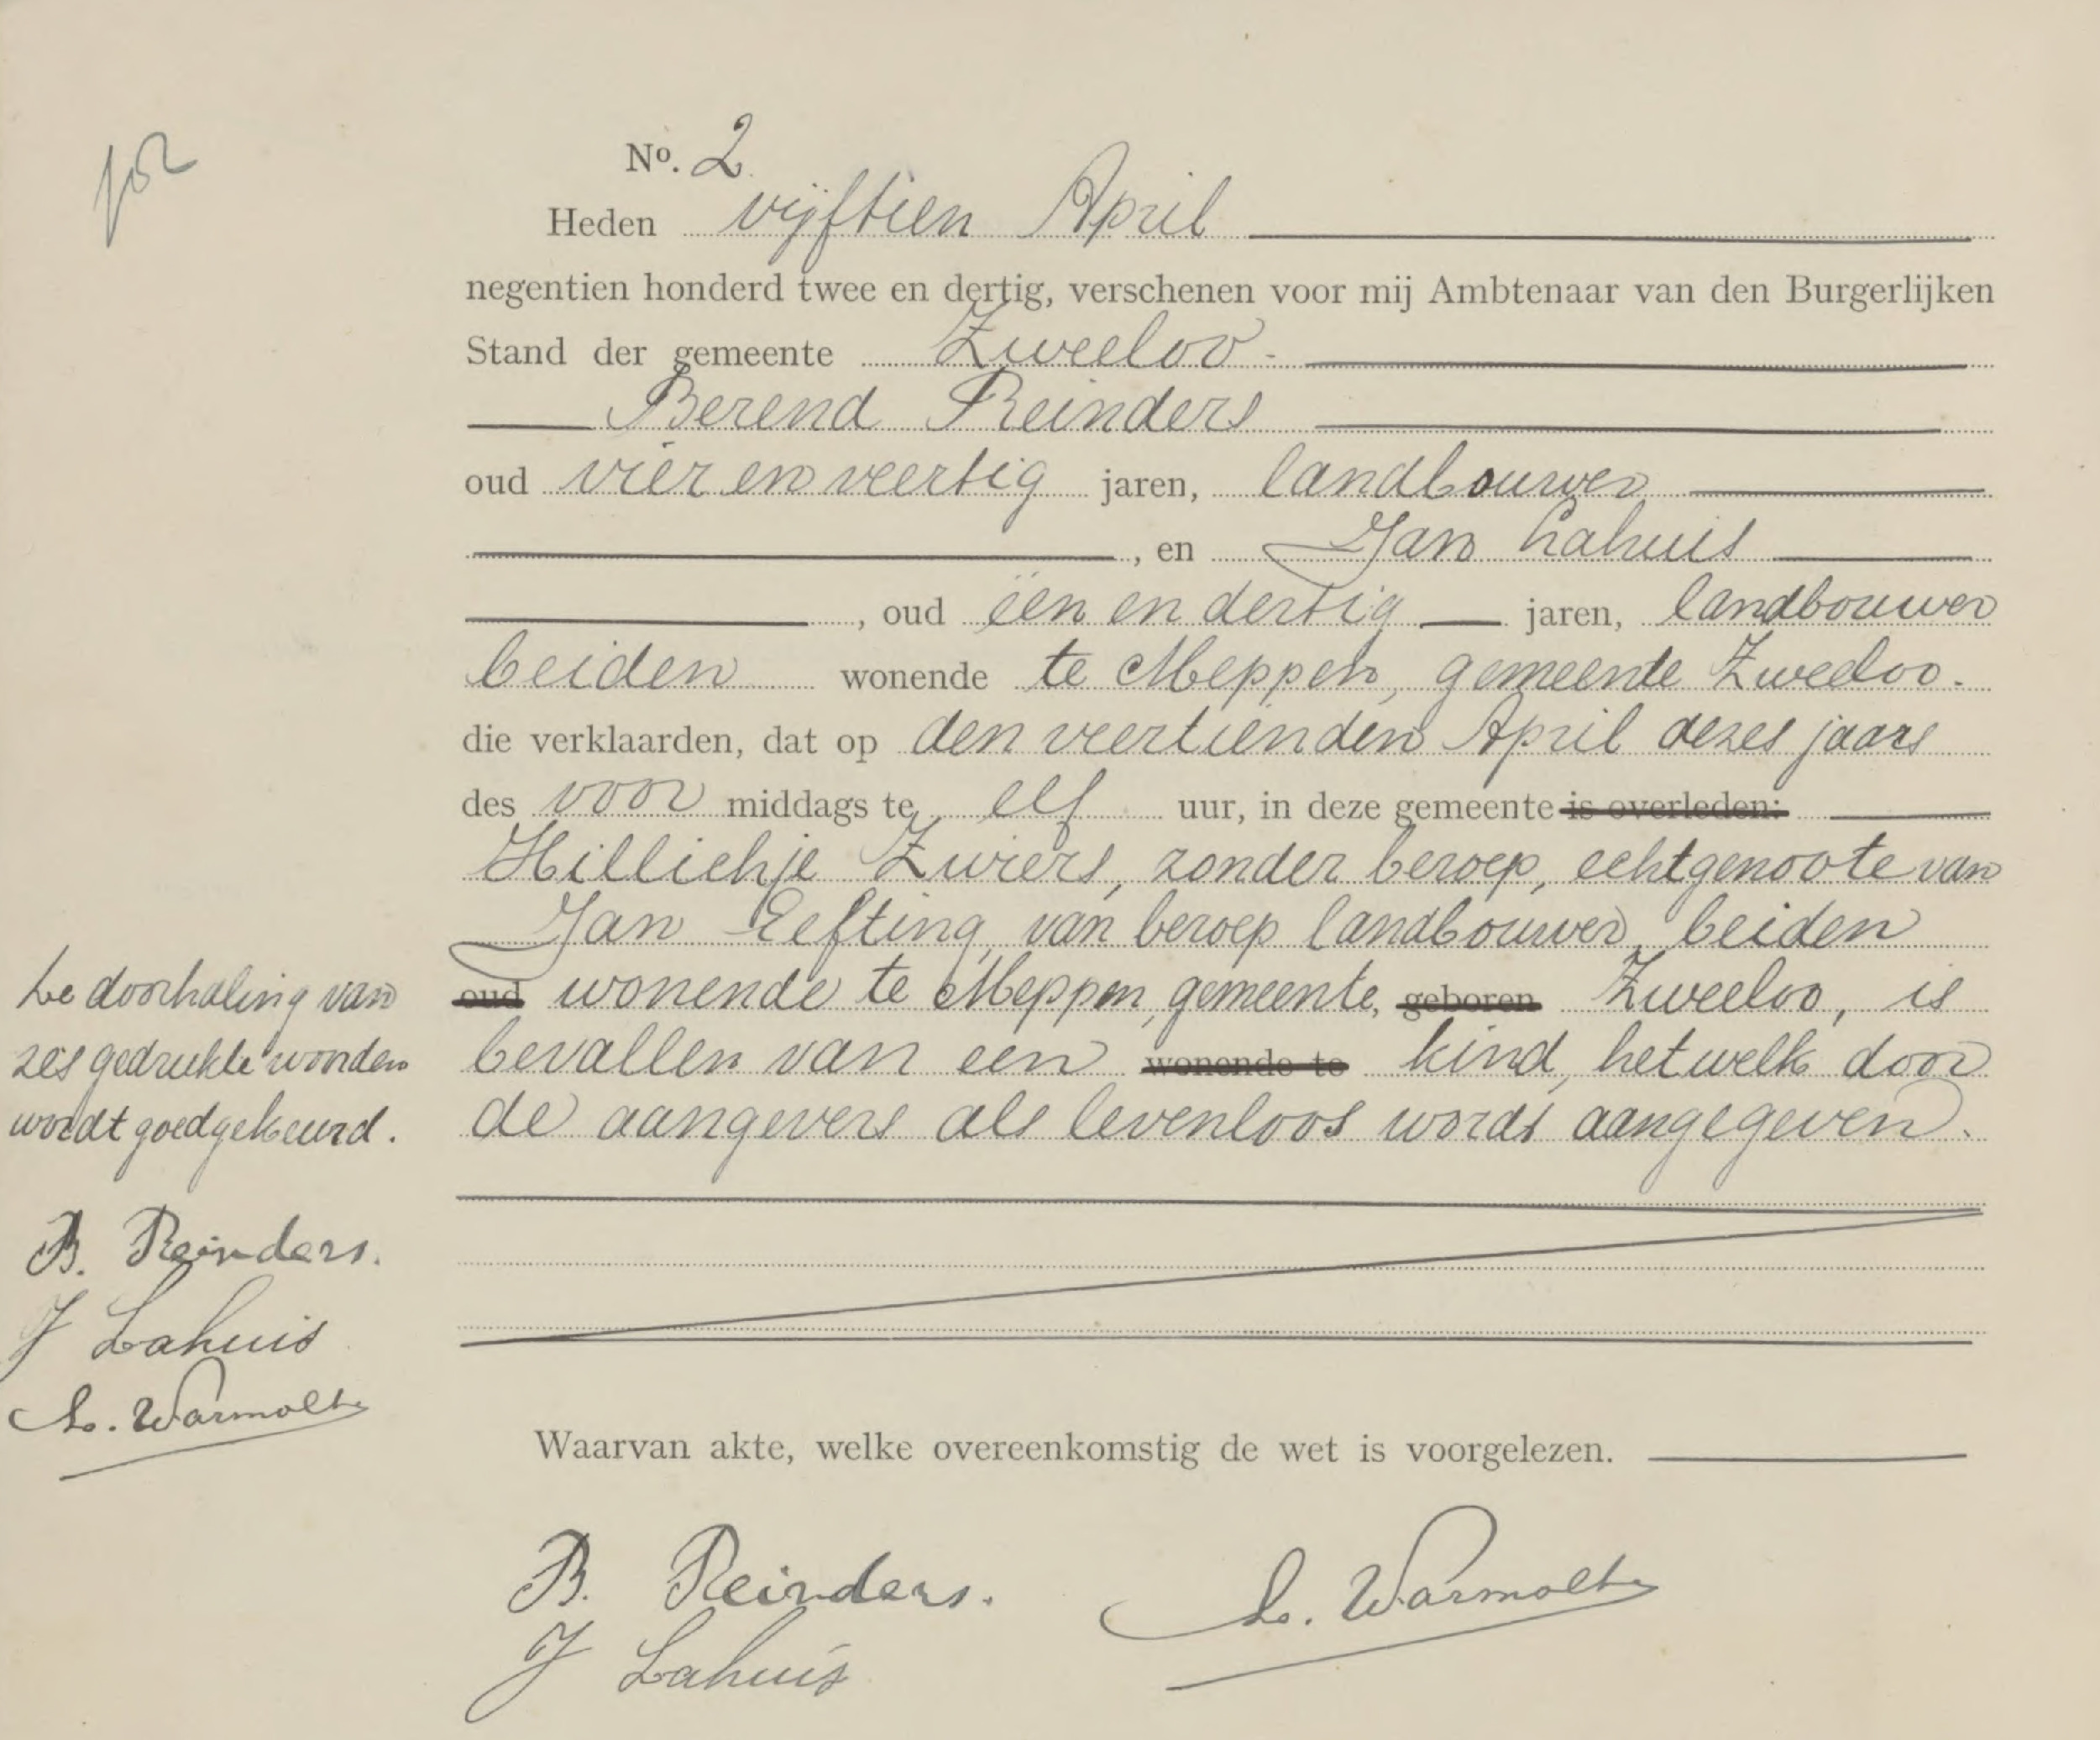 No. 2
Heden vijftien April
negentien honderd twee en dertig, verschenen voor mij Ambtenaar van den Burgerlijken
Stand der gemeente Zweeloo -
Berend Reinders
oud vier en veertig jaren, landbouwer
, en Jan Lahuis
, oud een en dertig jaren, landbouwer
beiden wonende te Meppen, gemeente Zweeloo.
die verklaarden, dat op den veertienden April dezes jaars
des voor middags te elf uur, in deze gemeente is overleden:
Hillichje Zwiers, zonder beroep, echtgenoote van
Jan Eefting, van beroep landbouwer, beiden
oud wonende te Meppen, gemeente, geboren Zweeloo, is
bevallen van een wonende te kind, hetwelk door
de aangevers als levenloos wordt aangegeven.
De doorhaling van
zes gedrukte woorden
wordt goedgekeurd.
B. Reinders.
J Lahuis
L. Warmolts
Waarvan akte, welke overeenkomstig de wet is voorgelezen.
B. Reinders. L. Warmolts
J Lahuis